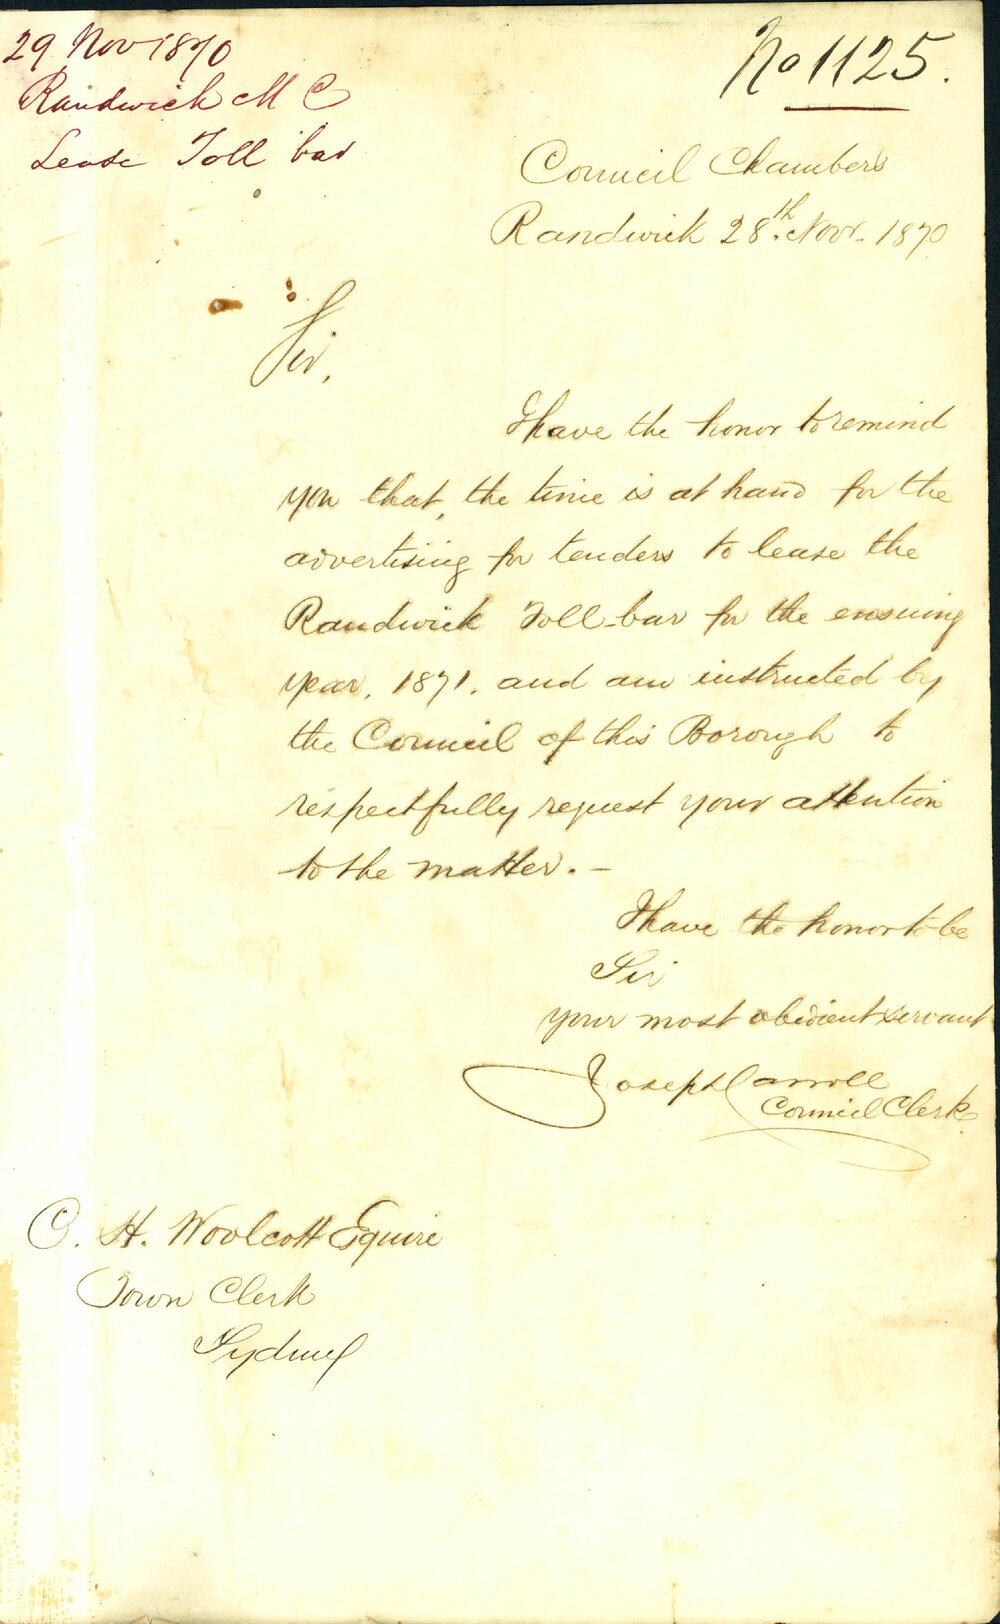 29 Nov 1870
Randwick M C
Lease Toll bar
No 1125.
Council Chambers
Randwick 28th. Novr. 1870
Sir,
I have the honor to remind
you that, the time is at hand for the
advertising for tenders to lease the
Randwick Toll-bar for the ensuing
year, 1871, and am instructed by
the Council of this Borough to
respectfully request your attention
to the matter. -
I have the honor to be
Sir
your most obedient servant
Joseph Carroll
Council Clerk
C. H. Woolcott Esquire
Town Clerk
Sydney